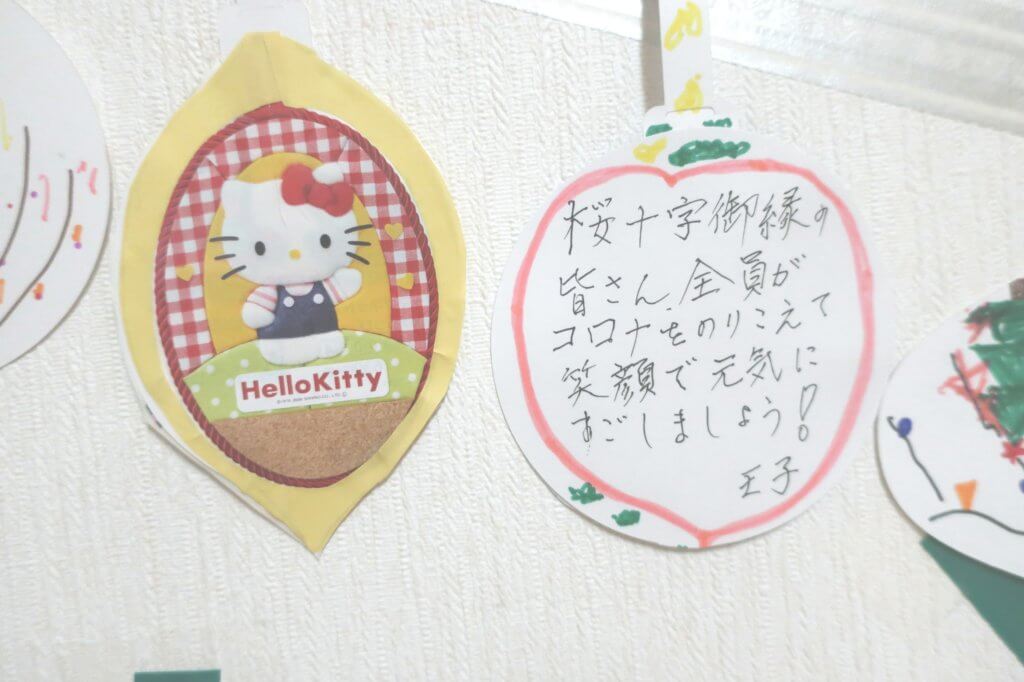 HelloKitty
桜十字御縁の
皆さん、全員が
コロナをのりこえて
笑顔で元気に
すごしましょう!
王子